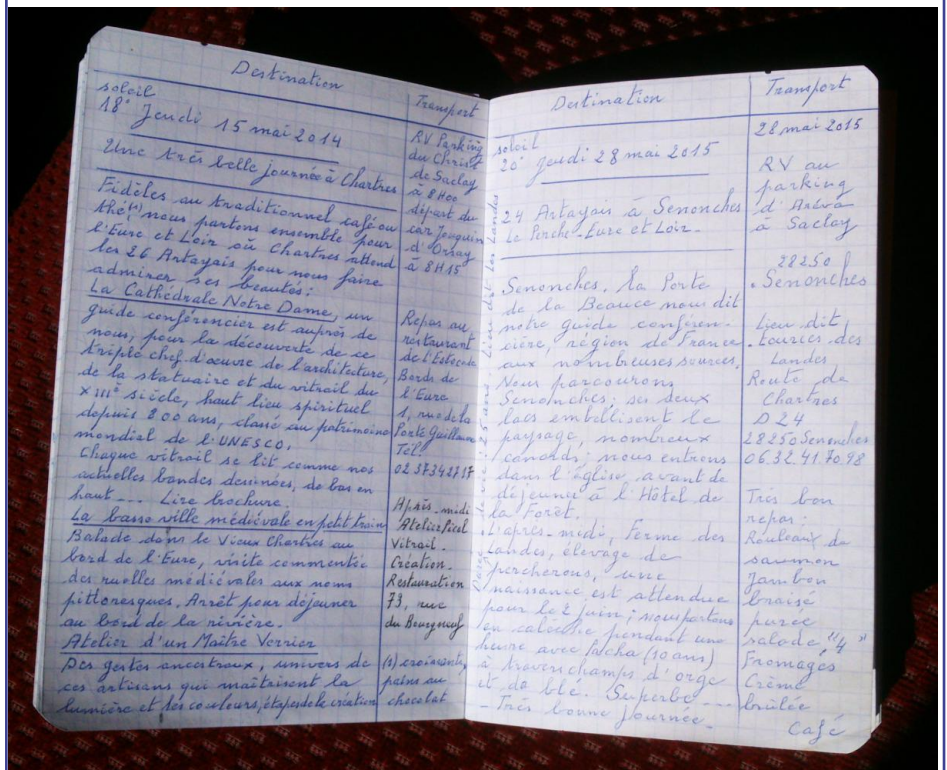 Destination
soleil
18° Jeudi 15 mai 2014
Une très belle journée à Chartres
Fidèles au traditionnel café ou
thé,(1) nous partons ensemble pour
l'Eure et Loir où Chartres attend
les 26 Artayais pour nous faire
admirer ses beautés:
La Cathédrale Notre Dame, un
guide conférencier est auprès de
nous, pour la découverte de ce
triple chef-d'œuvre de l'architecture,
de la statuaire et du vitrail du
XIIIè siècle, haut lieu spirituel
depuis 800 ans, classé au patrimoine
mondial de l'UNESCO.
Chaque vitrail se lit comme nos
actuelles bandes dessinées, de bas en
haut --- Lire brochure.
La basse ville médiévale en petit train
Balade dans le Vieux Chartres au
bord de l'Eure, visite commentée
des ruelles médiévales aux noms
pittoresques. Arrêt pour déjeuner
au bord de la rivière.
Atelier d'un Maître Verrier
Des gestes ancestraux, univers de
ces artisans qui maîtrisent la
lumière et les couleurs, étapes de la création
Transport
RV Parking
du Christ
de Saclay
à 8H00
départ du
car Jouquin
d'Orsay
à 8H15
Repas au
restaurant
de l'Estocade
Bords de
l'Eure
1, rue de la
Porte Guillaume
Tél
0237342717
Après-midi
Atelier Picol
Vitrail.
Création.
Restauration
73, rue
du Bourgneuf
(1) croissants,
pains au
chocolat
Destination
soleil
20° jeudi 28 mai 2015
24 Artayais à Senonches
Le Perche-Eure et Loir-
Senonches, la Porte
de la Beauce nous dit
notre guide conféren-
cière, région de France
aux nombreuses sources,
Nous parcourons
Senonches; ses deux
lacs embellisent le
paysage, nombreux
canards; nous entrons
dans l'église avant de
déjeuner à l'Hôtel de
la Forêt.
L'après-midi, Ferme des
Landes, élevage de
percherons, une
naissance est attendue
pour le 2 juin; nous partons
en calèche pendant une
heure avec Pacha (10 ans)
à travers champs d'orge
et de blé. Superbe ---
- Très bonne Journée -
Transport
28 mai 2015
RV au
parking
à Saclay
28250
- Senonches
Lieu dit
Landes
Route de
Chartres
D 24
28250 Senonches
06.32.41.70.98
Très bon
repas:
Rouleaux de
saumon
Jambon
braisé
purée
salade, "4"
Fromages
Crème
brûlée
Café